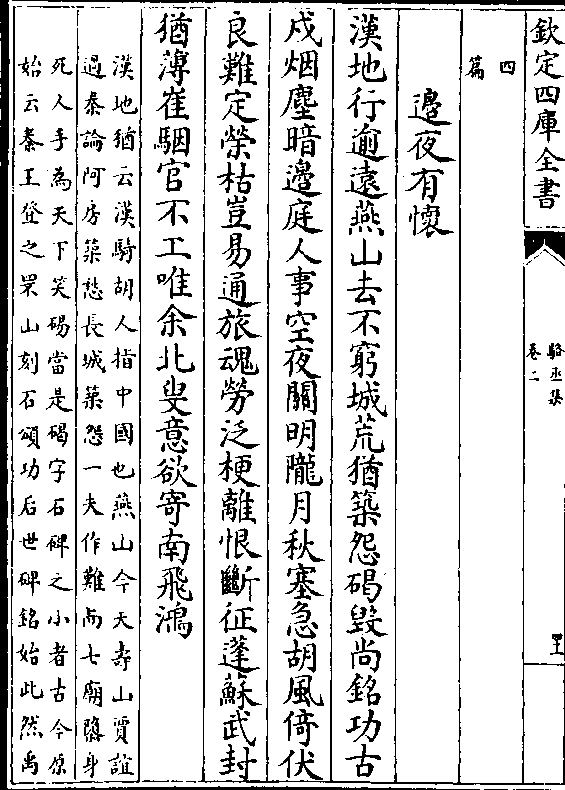 欽定四庫全書
駱丞集
卷二
四
篇
邉夜有懷
漢地行逾遠燕山去不窮城荒猶築怨碣毁尚銘功古
戍烟塵暗邉庭人事空夜關明隴月秋塞急胡風倚伏
良難定榮枯豈易通旅魂勞泛梗離恨斷征蓬蘇武封
猶薄崔駰官不工唯余北叟意欲寄南飛鴻
漢地猶云漢騎胡人指中國也燕山今天壽山賈誼
過秦論阿房築愁長城築怨一夫作難而七廟隳身
死人手為天下笑碣當是碣字石碑之小者古今原
始云秦王登之罘山刻石頌功后世碑銘始此然禹